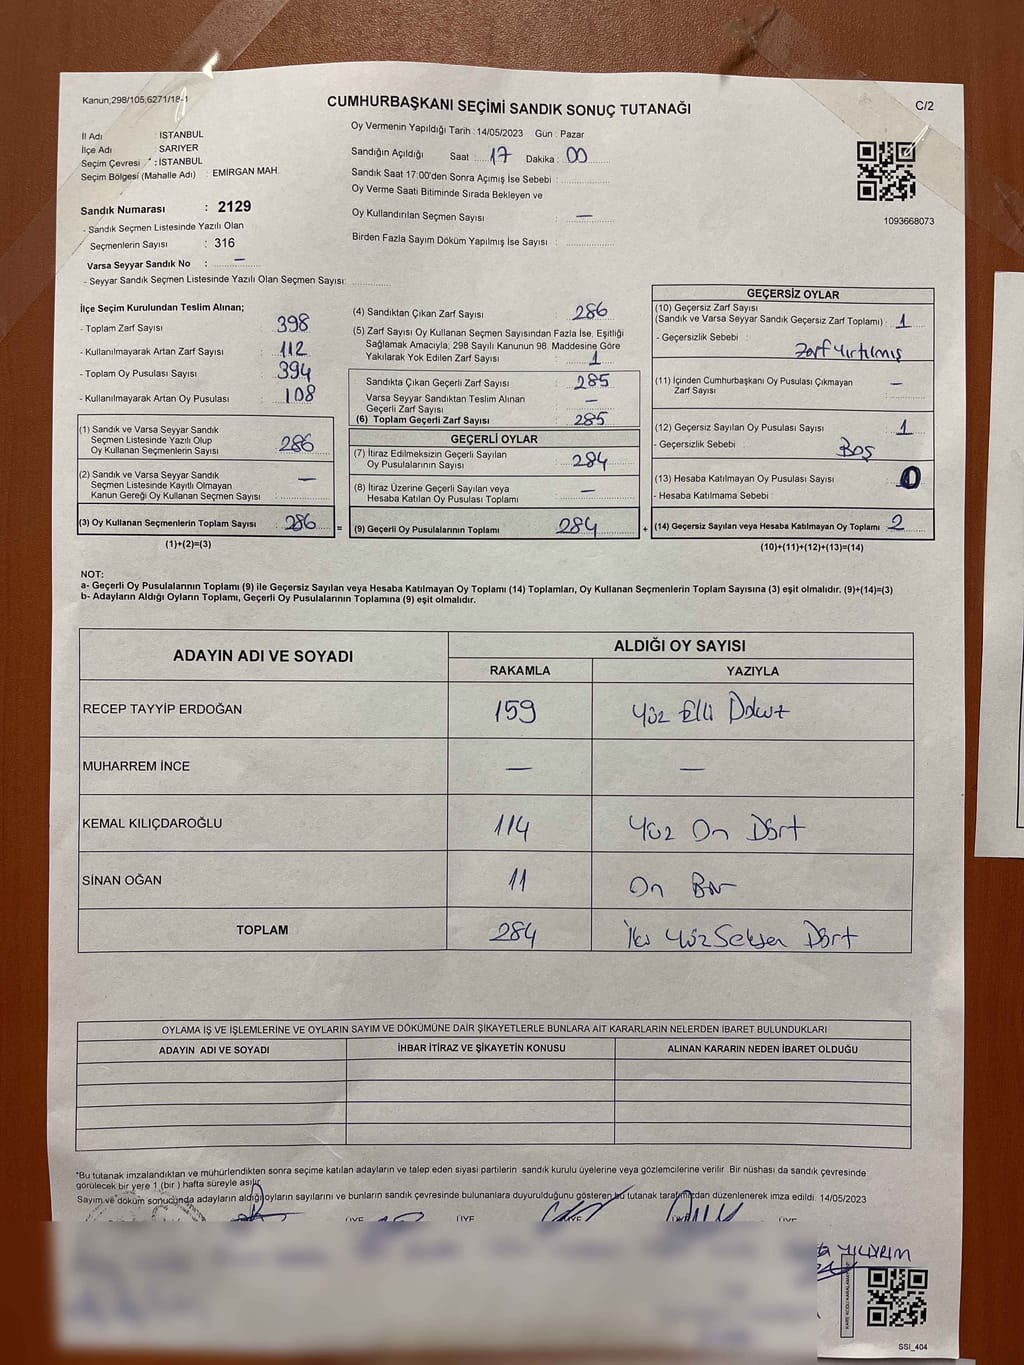 Kanun;298/105;6271/18-1
CUMHURBAŞKANI SEÇİMİ SANDIK SONUÇ TUTANAĞI
C/2
İl Adı : İSTANBUL
İlçe Adı : SARIYER
Seçim Çevresi : İSTANBUL
Seçim Bölgesi (Mahalle Adı) : EMİRGAN MAH.
Sandık Numarası : 2129
- Sandık Seçmen Listesinde Yazılı Olan
Seçmenlerin Sayısı : 316
Varsa Seyyar Sandık No : —
- Seyyar Sandık Seçmen Listesinde Yazılı Olan Seçmen Sayısı:
Oy Vermenin Yapıldığı Tarih : 14/05/2023 Gün : Pazar
Sandığın Açıldığı Saat : 17 Dakika : 00
Sandık Saat 17:00'den Sonra Açımış İse Sebebi :
Oy Verme Saati Bitiminde Sırada Bekleyen ve
Oy Kullandırılan Seçmen Sayısı : —
Birden Fazla Sayım Döküm Yapılmış İse Sayısı :
1093668073
İlçe Seçim Kurulundan Teslim Alınan;
- Toplam Zarf Sayısı : 398
- Kullanılmayarak Artan Zarf Sayısı : 112
- Toplam Oy Pusulası Sayısı : 394
- Kullanılmayarak Artan Oy Pusulası : 108
(1) Sandık ve Varsa Seyyar Sandık
Seçmen Listesinde Yazılı Olup
Oy Kullanan Seçmenlerin Sayısı : 286
(2) Sandık ve Varsa Seyyar Sandık
Seçmen Listesinde Kayıtlı Olmayan
Kanun Gereği Oy Kullanan Seçmen Sayısı : —
(3) Oy Kullanan Seçmenlerin Toplam Sayısı : 286 =
(1)+(2)=(3)
(4) Sandıktan Çıkan Zarf Sayısı : 286
(5) Zarf Sayısı Oy Kullanan Seçmen Sayısından Fazla İse, Eşitliği
Sağlamak Amacıyla; 298 Sayılı Kanunun 98. Maddesine Göre
Yakılarak Yok Edilen Zarf Sayısı : 1
Sandıkta Çıkan Geçerli Zarf Sayısı : 285
Varsa Seyyar Sandıktan Teslim Alınan
Geçerli Zarf Sayısı : —
(6) Toplam Geçerli Zarf Sayısı : 285
GEÇERLİ OYLAR
(7) İtiraz Edilmeksizin Geçerli Sayılan
Oy Pusulalarının Sayısı : 284
(8) İtiraz Üzerine Geçerli Sayılan veya
Hesaba Katılan Oy Pusulası Toplamı : —
(9) Geçerli Oy Pusulalarının Toplamı : 284 +
GEÇERSİZ OYLAR
(10) Geçersiz Zarf Sayısı
(Sandık ve Varsa Seyyar Sandık Geçersiz Zarf Toplamı) : 1
- Geçersizlik Sebebi : Zarf Yırtılmış
(11) İçinden Cumhurbaşkanı Oy Pusulası Çıkmayan
Zarf Sayısı : —
(12) Geçersiz Sayılan Oy Pusulası Sayısı : 1
- Geçersizlik Sebebi : Boş
(13) Hesaba Katılmayan Oy Pusulası Sayısı : 0
- Hesaba Katılmama Sebebi :
(14) Geçersiz Sayılan veya Hesaba Katılmayan Oy Toplamı : 2
(10)+(11)+(12)+(13)=(14)
NOT:
a- Geçerli Oy Pusulalarının Toplamı (9) ile Geçersiz Sayılan veya Hesaba Katılmayan Oy Toplamı (14) Toplamları, Oy Kullanan Seçmenlerin Toplam Sayısına (3) eşit olmalıdır. (9)+(14)=(3)
b- Adayların Aldığı Oyların Toplamı, Geçerli Oy Pusulalarının Toplamına (9) eşit olmalıdır.
ADAYIN ADI VE SOYADI
ALDIĞI OY SAYISI
RAKAMLA YAZIYLA
RECEP TAYYİP ERDOĞAN 159 Yüz Elli Dokuz
MUHARREM İNCE — —
KEMAL KILIÇDAROĞLU 114 Yüz On Dört
SİNAN OĞAN 11 On Bir
TOPLAM 284 İki Yüz Seksen Dört
OYLAMA İŞ VE İŞLEMLERİNE VE OYLARIN SAYIM VE DÖKÜMÜNE DAİR ŞİKAYETLERLE BUNLARA AİT KARARLARIN NELERDEN İBARET BULUNDUKLARI
ADAYIN ADI VE SOYADI İHBAR İTİRAZ VE ŞİKAYETİN KONUSU ALINAN KARARIN NEDEN İBARET OLDUĞU
*Bu tutanak imzalandıktan ve mühürlendikten sonra seçime katılan adayların ve talep eden siyasi partilerin sandık kurulu üyelerine veya gözlemcilerine verilir Bir nüshası da sandık çevresinde
görülecek bir yere 1 (bir ) hafta süreyle asılır.
Sayım ve döküm sonucunda adayların aldığı oyların sayılarını ve bunların sandık çevresinde bulunanlara duyurulduğunu gösteren bu tutanak tarafımızdan düzenlenerek imza edildi. 14/05/2023
ÜYE ÜYE ÜYE ÜYE ÜYE
YILDIRIM
SSI_404